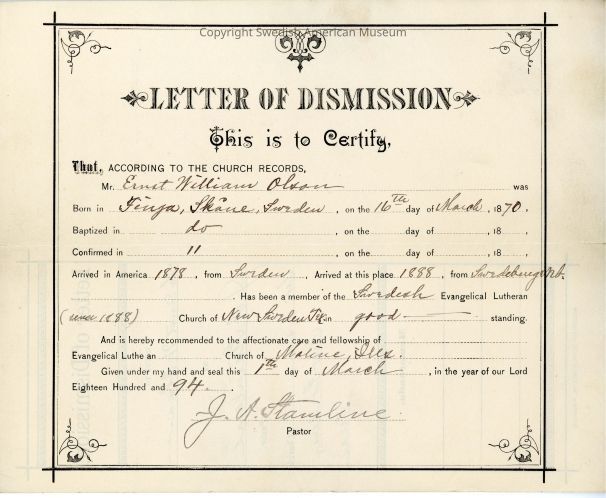 Copyright Swedish American Museum
LETTER OF DISMISSION
This is to Certify,
That, ACCORDING TO THE CHURCH RECORDS,
Mr. Ernst William Olson was
Born in Finja, Skåne, Sweden, on the 16th day of March, 1870,
Baptized in do, on the day of , 18 ,
Confirmed in 11, on the day of , 18 .
Arrived in America 1878, from Sweden. Arrived at this place 1888, from Swedeburg Neb.
. Has been a member of the Swedish Evangelical Lutheran
(since 1888) Church of New Sweden Tex in good standing.
And is hereby recommended to the affectionate care and fellowship of
Evangelical Luthe an Church of Moline, Ills.
Given under my hand and seal this 1th day of March, in the year of our Lord
Eighteen Hundred and 94.
J. A. Stamline
Pastor